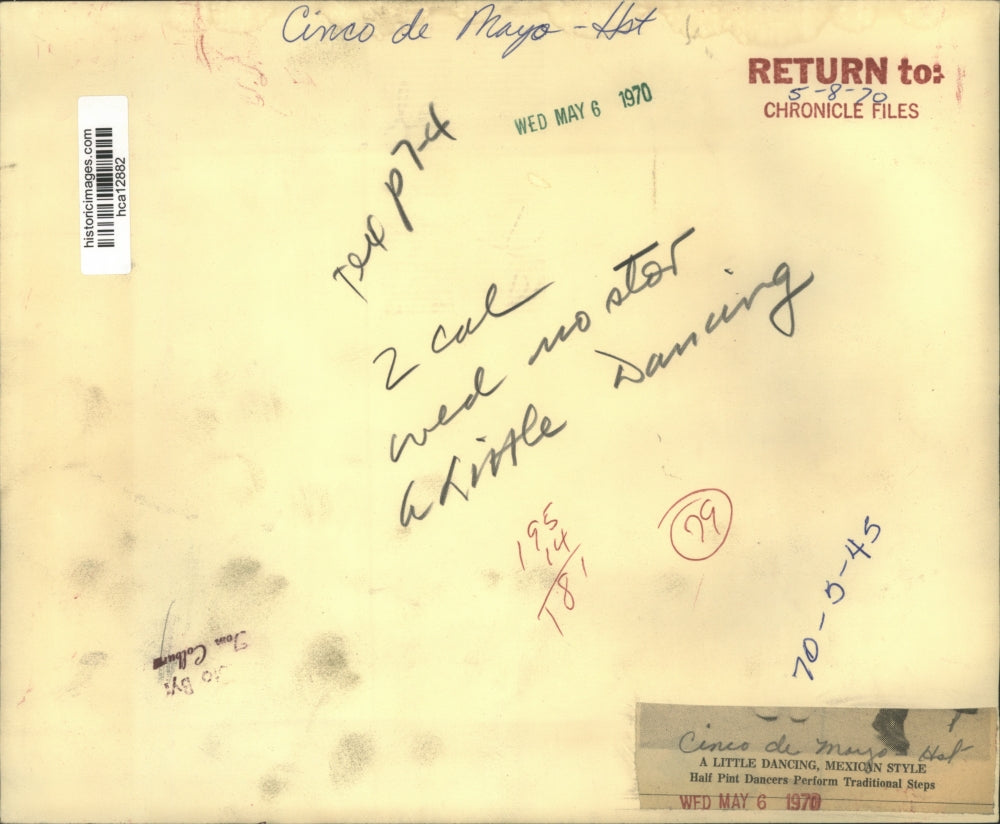 Cinco de Mayo - Hst
RETURN to:
5-8-70
CHRONICLE FILES
WED MAY 6 1970
historicimages.com
hca12882
p 7-4
2 col
wed no stor
A Little Dancing
195
14
181
79
70-5-45
Tom Colburn
By:
Cinco de Mayo - Hst
A LITTLE DANCING, MEXICAN STYLE
Half Pint Dancers Perform Traditional Steps
WED MAY 6 1970